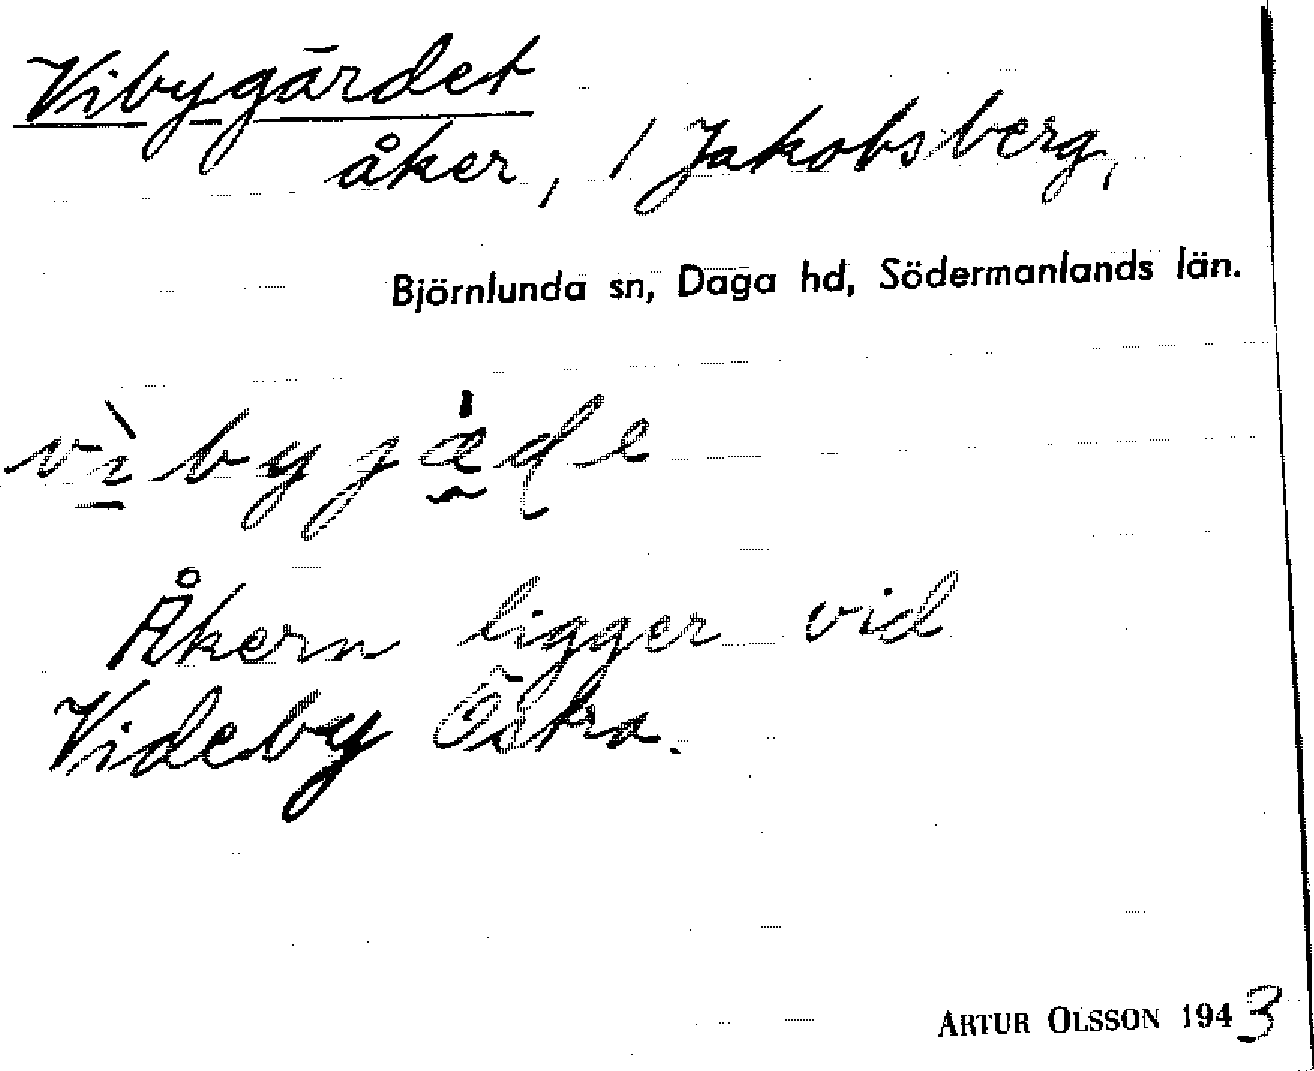 Vibygärdet
åker, / Jakobsberg,
Björnlunda sn, Daga hd, Södermanlands län.
vì̱byjæ̀de
Åkern ligger vid
Videby Östra.
ARTUR OLSSON 1943